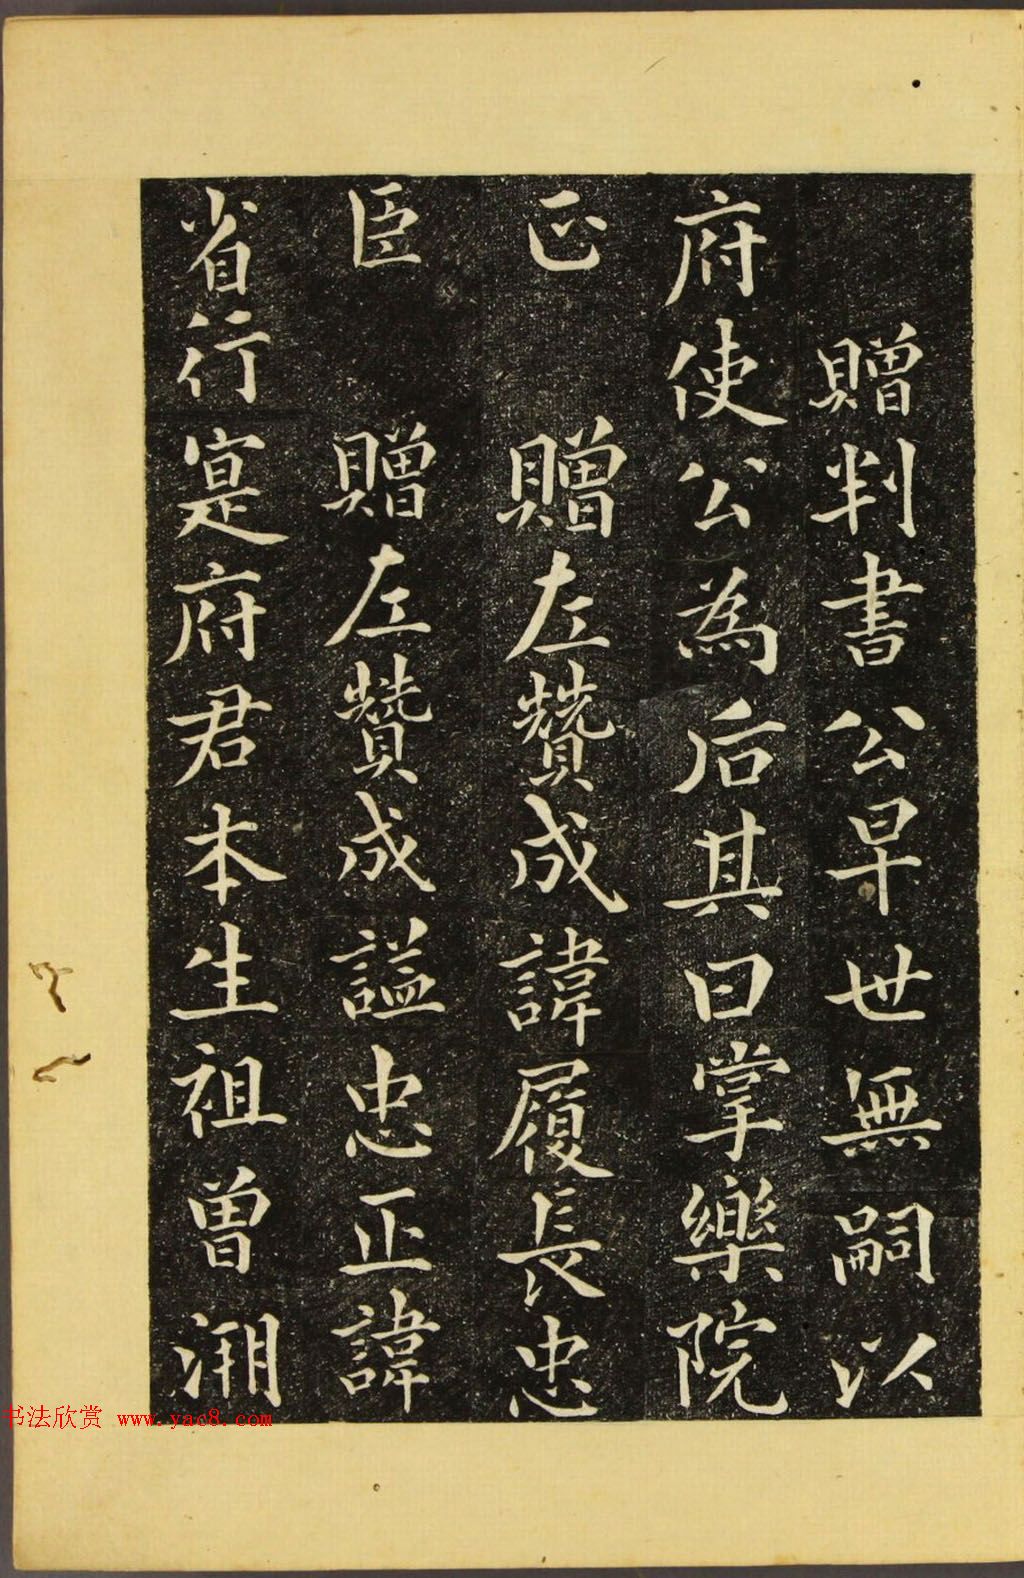 贈判書公早世無嗣以
府使公為后其曰掌樂院
正 贈左贊成諱履長忠
臣 贈左贊成謚忠正諱
省行寔府君本生祖曾
书法欣赏 www.yac8.com